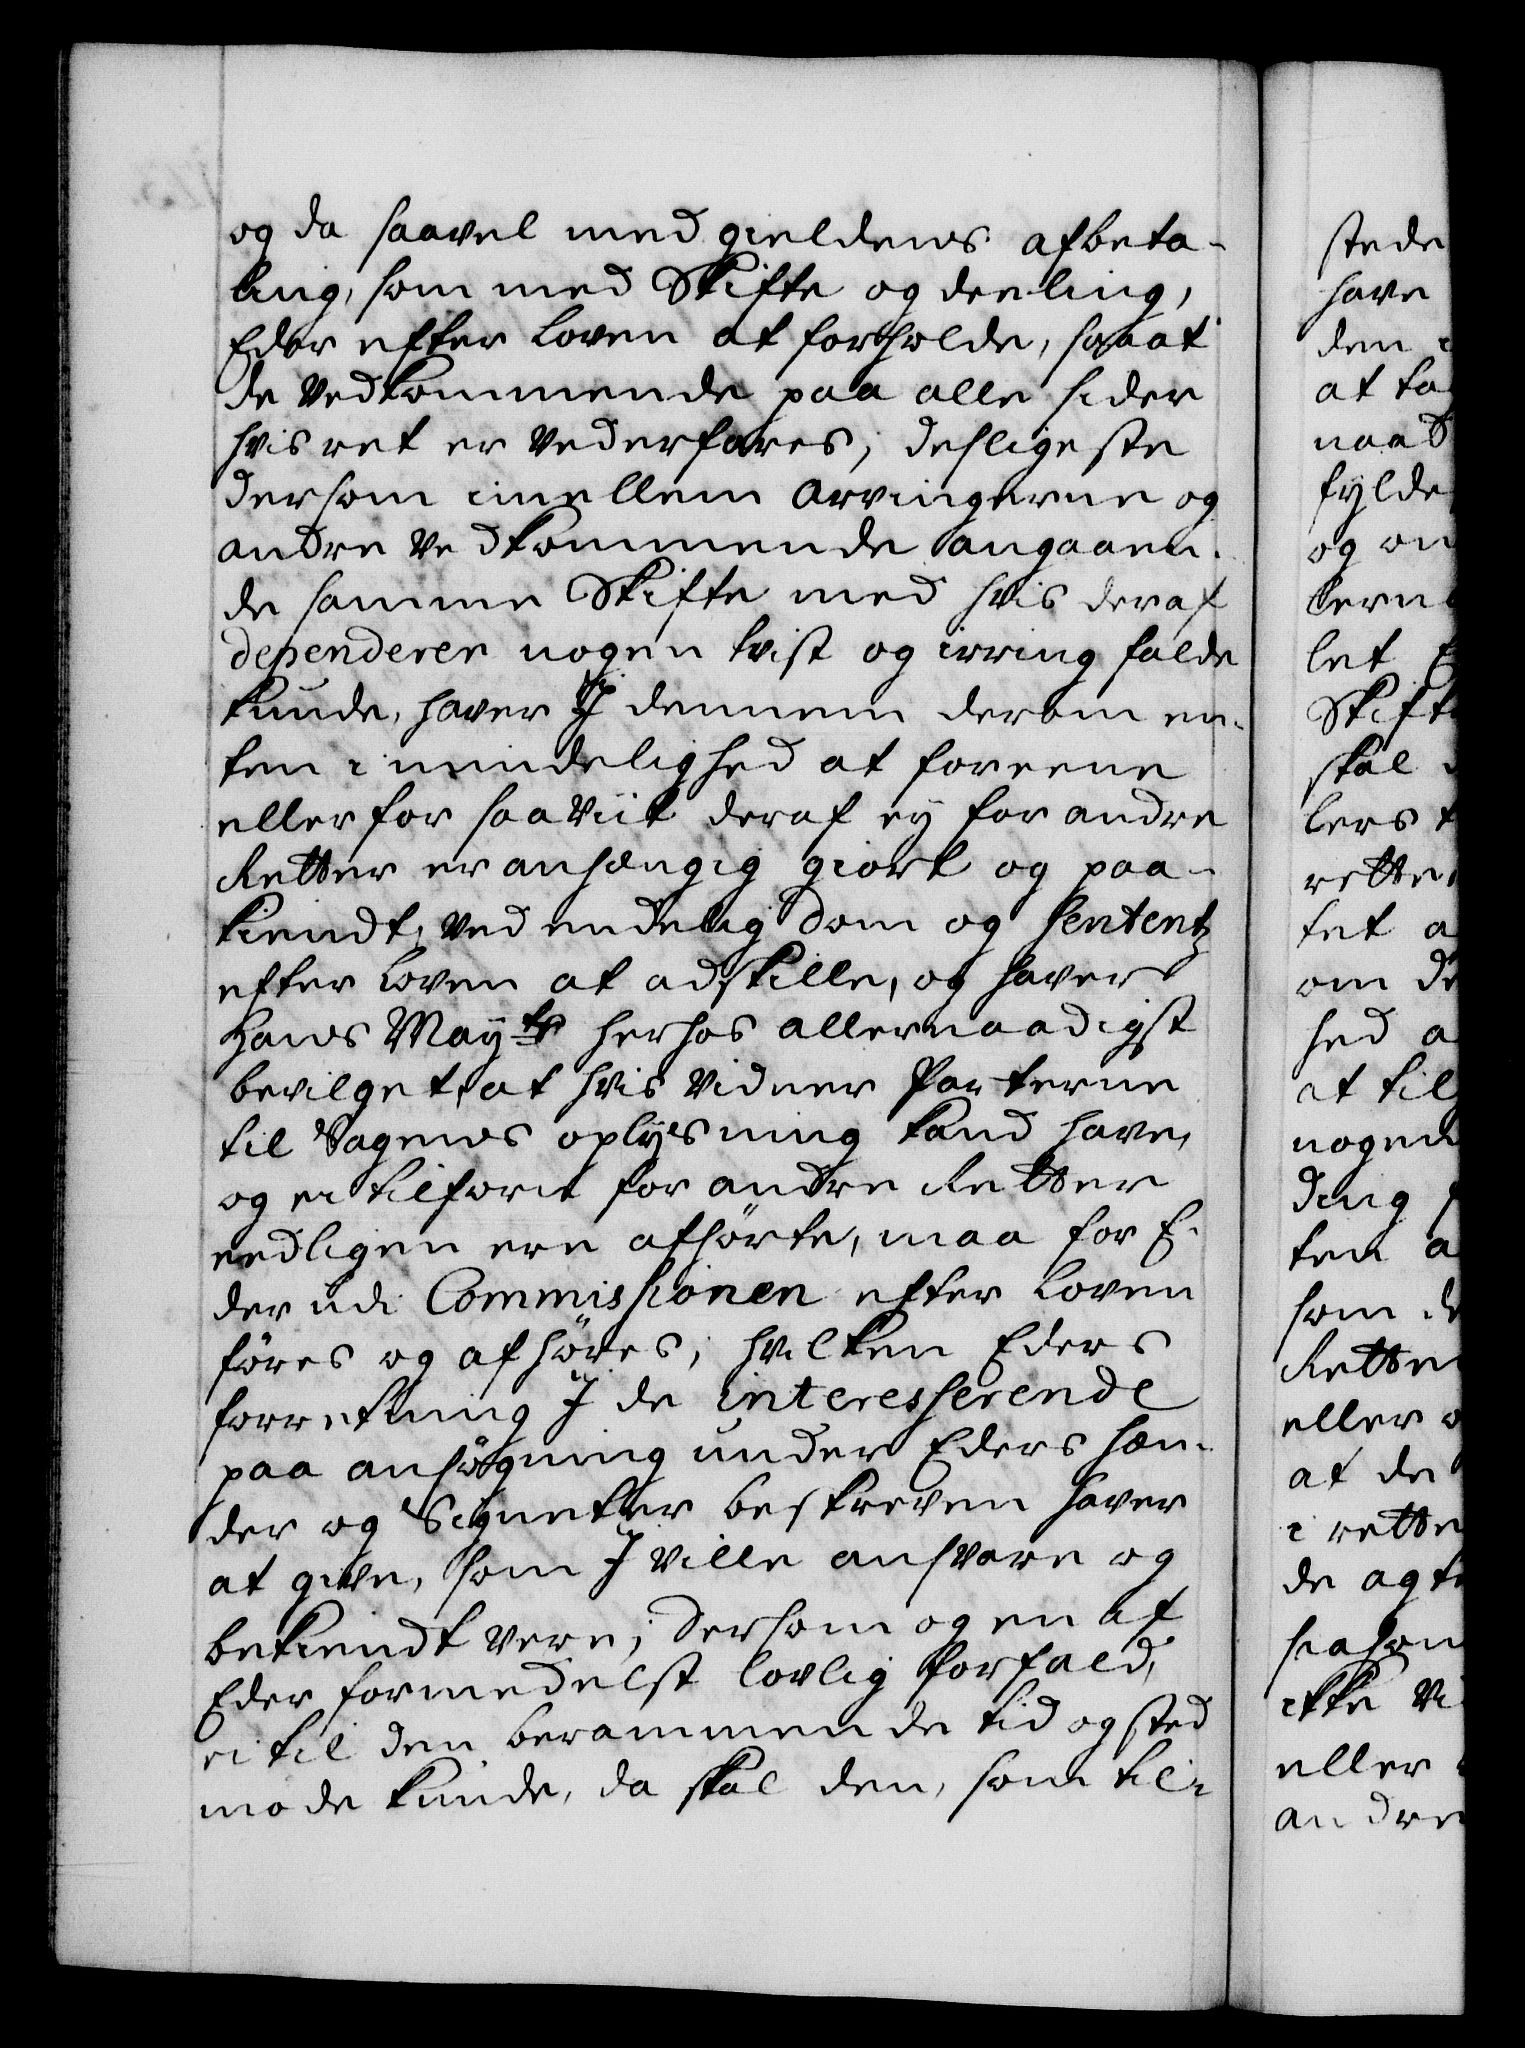 og da saavel med gieldens afbeta-
ling, som med Skifte og deeling,
Eder efter Loven at forholde, saaat
de Vedkommende paa alle sider
hvis ret er Vederfares; desligeste
dersom imellem Arvingerne og
andre Vedkommende angaaen-
de samme Skifte med hvis deraf
dependerer nogen tvist og irring falde
kunde, haver I dennem derom en-
ten i mindelighed at foreene
eller for saaviit deraf ey for andre
Retter er anhængig giort og paa-
kiendt, ved endelig dom og Sententz
efter Loven at adskille, og haver
Hans Mayts herhos allernaadigst
bevilget, at hvis vidner Parterne
til Sagens oplysning kand have,
og ei tilforn for andre Retter
eedligen ere afhörte, maa for E-
der udi Commissionen efter Loven
föres og afhöres; hvilken Eders
forretning I de interesserende
paa ansögning under Eders hæn-
der og Signeter beskreven haver
at give, som I ville ansvare og
bekiendt vere; dersom og en af
Eder formedelst lovlig forfald,
ei til den berammende tid og sted
möde kunde, da skal den, som til-
stede
have
den
at ta
naad
fylde
og om
lern
let E
Skift
skal
lers
rette
tet a
om de
hed a
at til
nogen
ding
ten a
som
Rette
eller
at de
i rette
de agt
saasom
ikke Vi
eller
andre